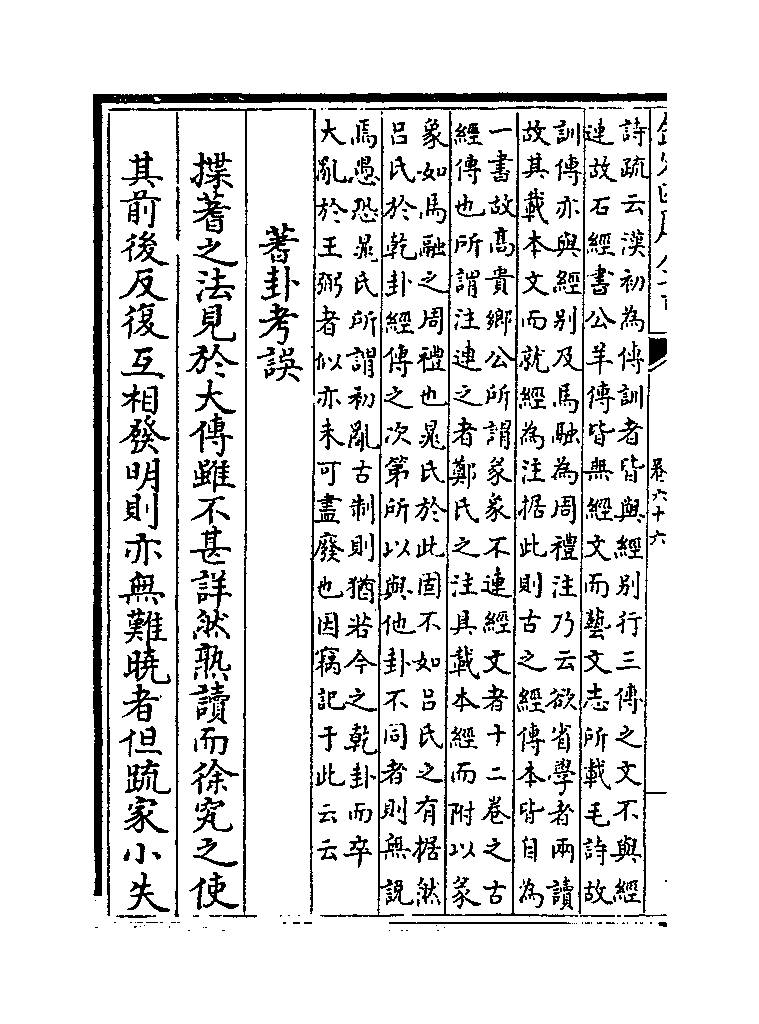 卷六十六
詩疏云漢初為傳訓者皆與經別行三傳之文不與經
連故石經書公羊傳皆無經文而藝文志所載毛詩故
訓傳亦與經別及馬融為周禮注乃云欲省學者兩讀
故其載本文而就經為注据此則古之經傳本皆自為
一書故高貴鄉公所謂彖象不連經文者十二卷之古
經傳也所謂注連之者鄭氏之注具載本經而附以彖
象如馬融之周禮也晁氏於此固不如吕氏之有据然
吕氏於乾卦經傳之次第所以與他卦不同者則無說
焉愚恐晁氏所謂初亂古制則猶若今之乾卦而卒
大亂於王弼者似亦未可盡廢也因竊記于此云云
蓍卦考誤
揲蓍之法見於大傳雖不甚詳然熟讀而徐究之使
其前後反復互相發明則亦無難曉者但疏家小失